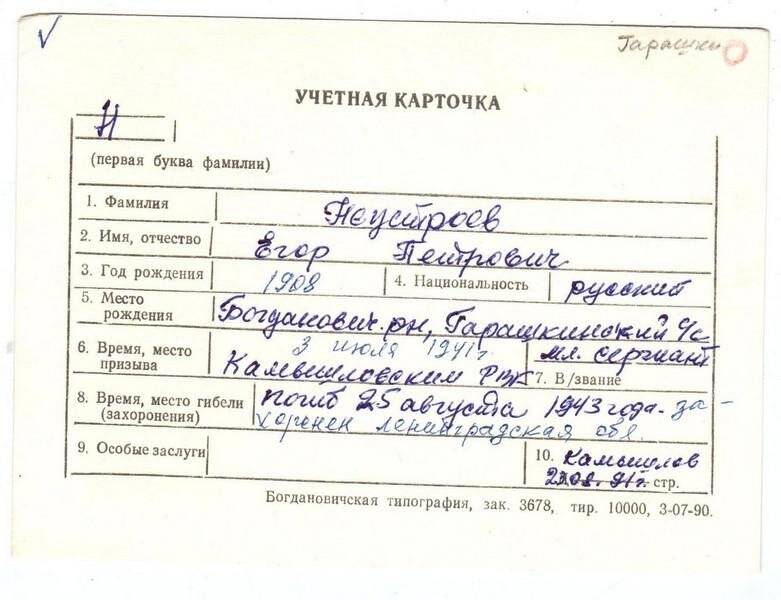 Гарашки
УЧЕТНАЯ КАРТОЧКА
Н
(первая буква фамилии)
1. Фамилия Неустроев
2. Имя, отчество Егор Петрович
3. Год рождения 1908 4. Национальность русский
5. Место рождения Богданович. рн, Гарашкинский с/с
6. Время, место призыва 3 июля 1941г. Камышловским РВК
мл. сержант 7. В/звание
8. Время, место гибели (захоронения) погиб 25 августа 1943 года. за-
хоронен ленинградская обл.
9. Особые заслуги
10. Камышлов
стр.
Богдановичская типография, зак. 3678, тир. 10000, 3-07-90.